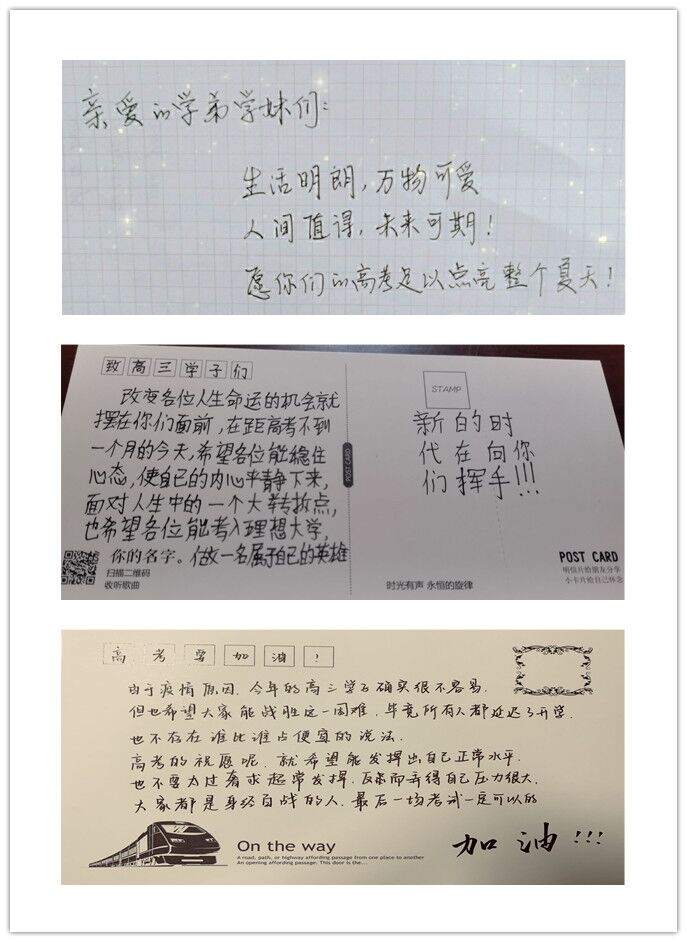 亲爱的学弟学妹们：
生活明朗，万物可爱
人间值得，未来可期！
愿你们的高考足以点亮整个夏天！
致高三学子们
改变各位人生命运的机会就
摆在你们面前，在距高考不到
一个月的今天，希望各位能稳住
心态，使自己的内心平静下来，
面对人生中的一个大转折点，
也希望各位能考入理想大学，
你的名字。做一名属于自己的英雄
扫描二维码
收听歌曲
POST CARD
STAMP
新的时
代在向你
们挥手!!!
POST CARD
明信片给朋友分享
小卡片给自己怀念
时光有声 永恒的旋律
高考要加油！
由于疫情原因，今年的高三学子确实很不容易.
但也希望大家能战胜这一困难，毕竟所有人都延迟了开学.
也不存在谁比谁占便宜的说法.
高考的祝愿呢，就希望能发挥出自己正常水平.
也不要太过奢求超常发挥，反而弄得自己压力很大.
大家都是身经百战的人，最后一场考试一定可以的
加油!!!
On the way
A road, path, or highway affording passage from one place to another
An opening affording passage: This door is the...